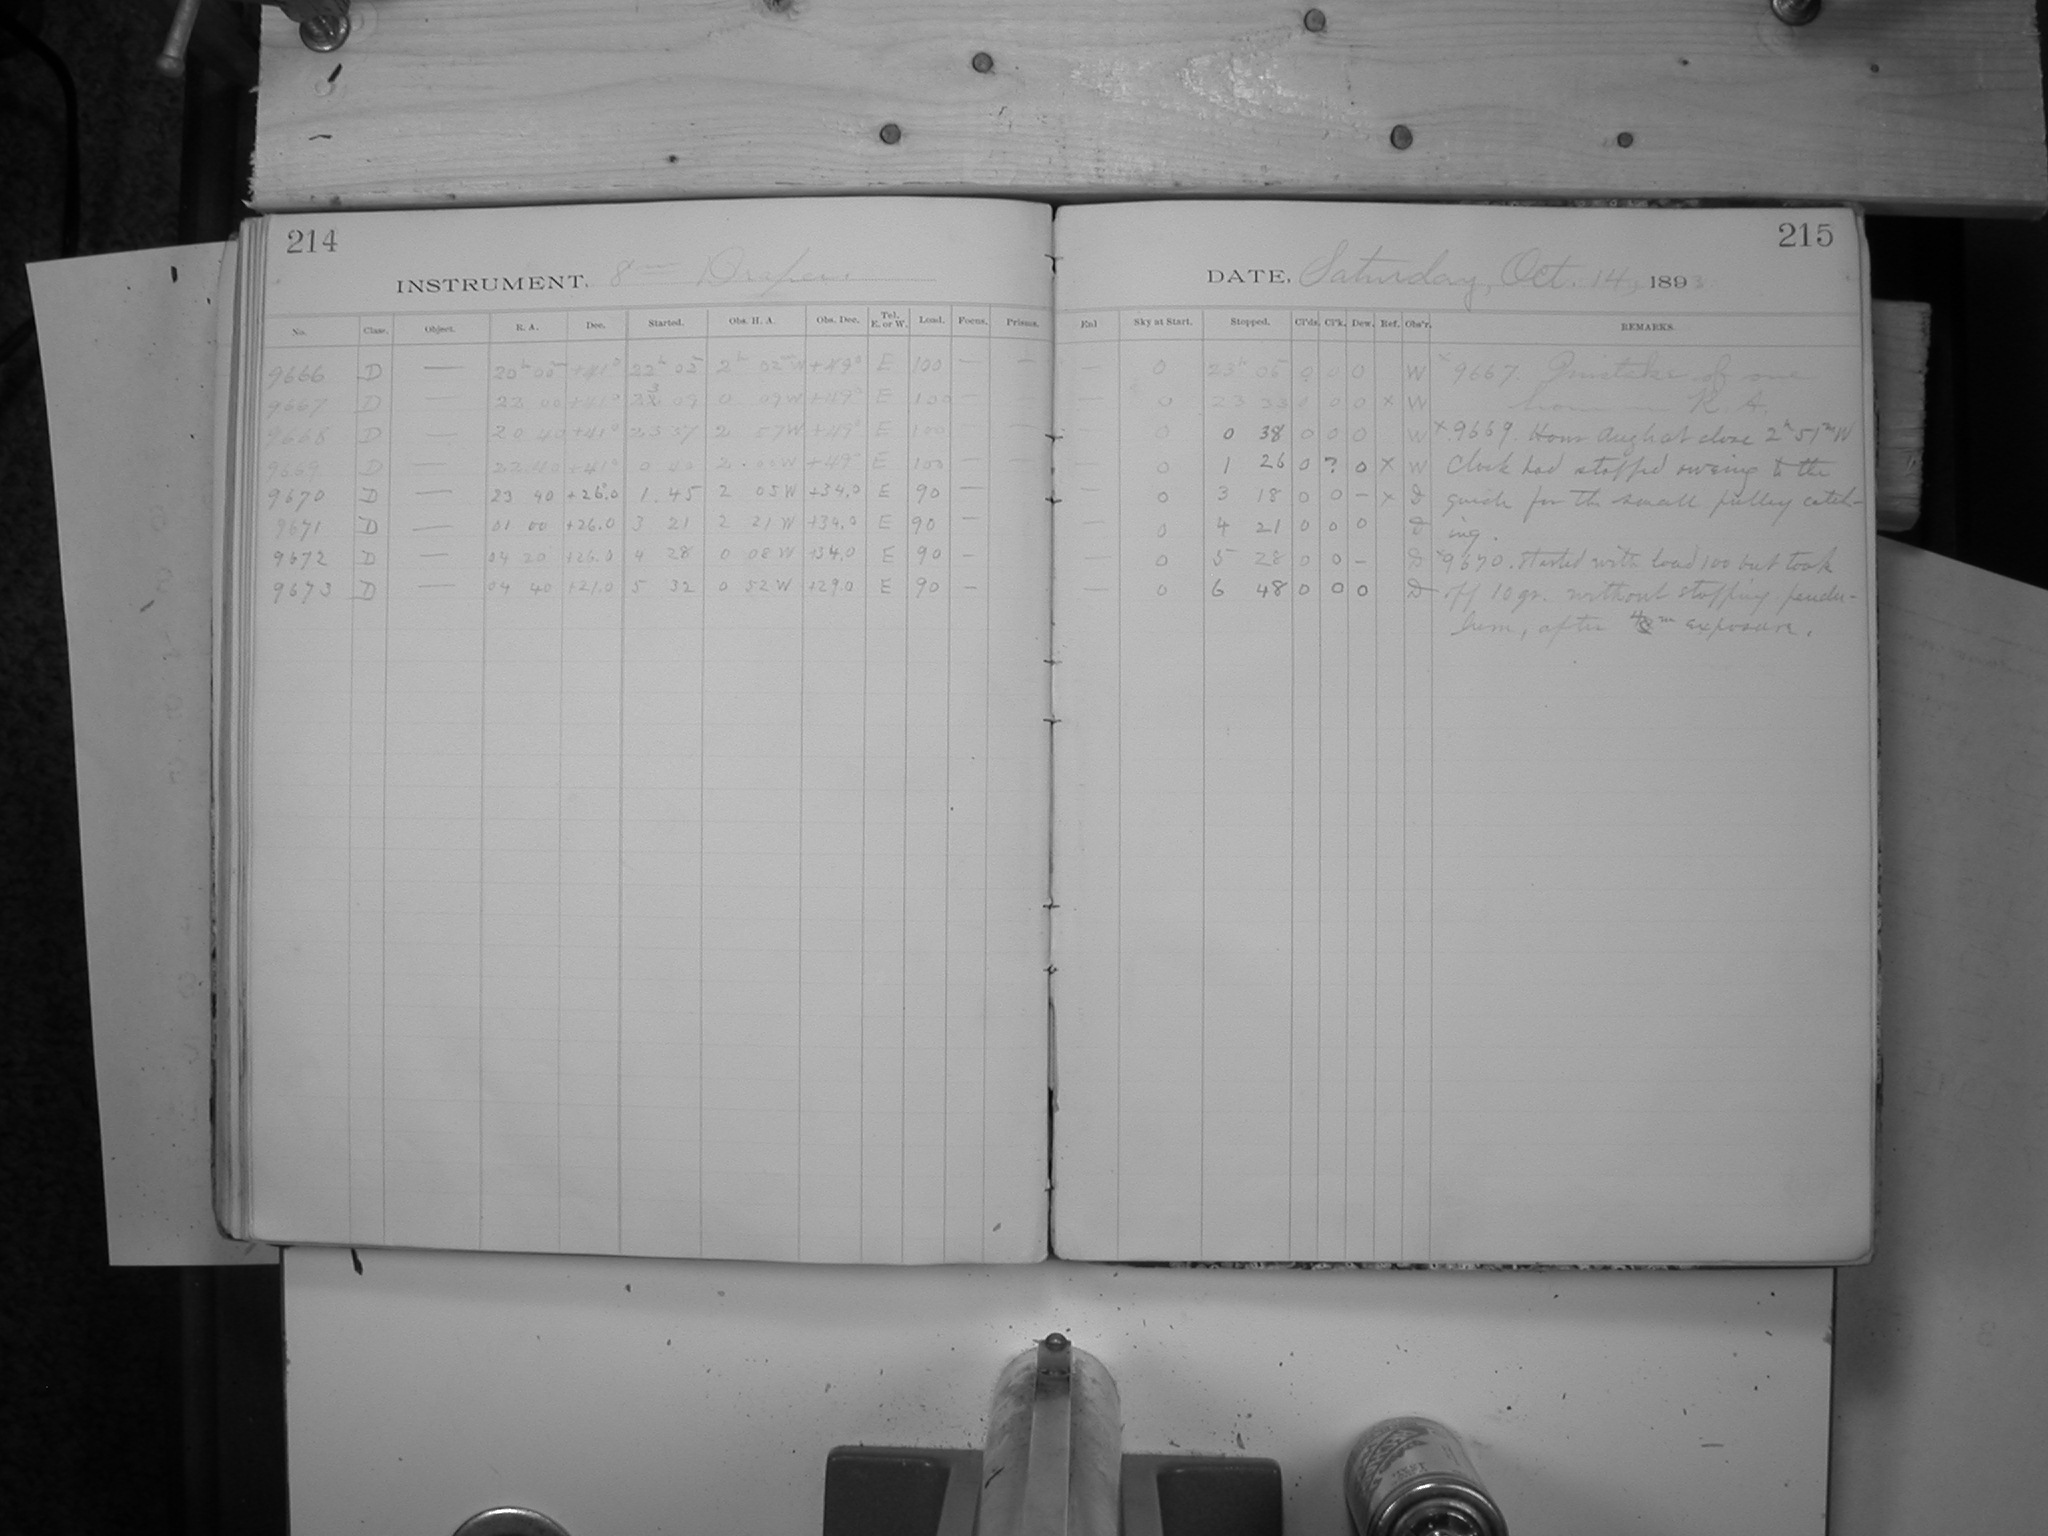 214
INSTRUMENT. 8 in Draper.
No. Class. Object. R. A. Dec. Started. Obs. H. A. Obs. Dec. Tel. E. or W. Load. Focus. Prisms.
9666 D — 20h 00m +41° 22h 05 2h 02m W +49° E 100 — —
9667 D — 22 00 +41° 23 09 0 09 W +49° E 100 — —
9668 D — 20 40 +41° 23 37 2 57 W +49° E 100 — —
9669 D — 22 40 +41° 0 40 2 00 W +49° E 100 — —
9670 D — 23 40 +26.0 1.45 2 05 W +34.0 E 90 —
9671 D — 01 00 +26.0 3 21 2 21 W +34.0 E 90 —
9672 D — 04 20 +26.0 4 28 0 08 W +34.0 E 90 —
9673 D — 04 40 +21.0 5 32 0 52 W +29.0 E 90 —
215
DATE, Saturday, Oct. 14, 1893
Enl Sky at Start. Stopped. Cl'ds. Cl'k. Dew. Ref. Obs'r. REMARKS.
— 0 23h 05 0 0 0 W x 9667. mistake of one
— 0 23 33 0 0 0 x W hour in R. A.
0 0 38 0 0 0 W x 9669. Hour Angle at close 2h 51m W
0 1 26 0 ? 0 x W Clock had stopped owing to the
— 0 3 18 0 0 – x D guide for the small pulley catch-
0 4 21 0 0 0 D ing.
— 0 5 28 0 0 – D x 9670. Started with load 100 but took
— 0 6 48 0 0 0 D off 10 gr. without stopping pendu-
lum, after m exposure.